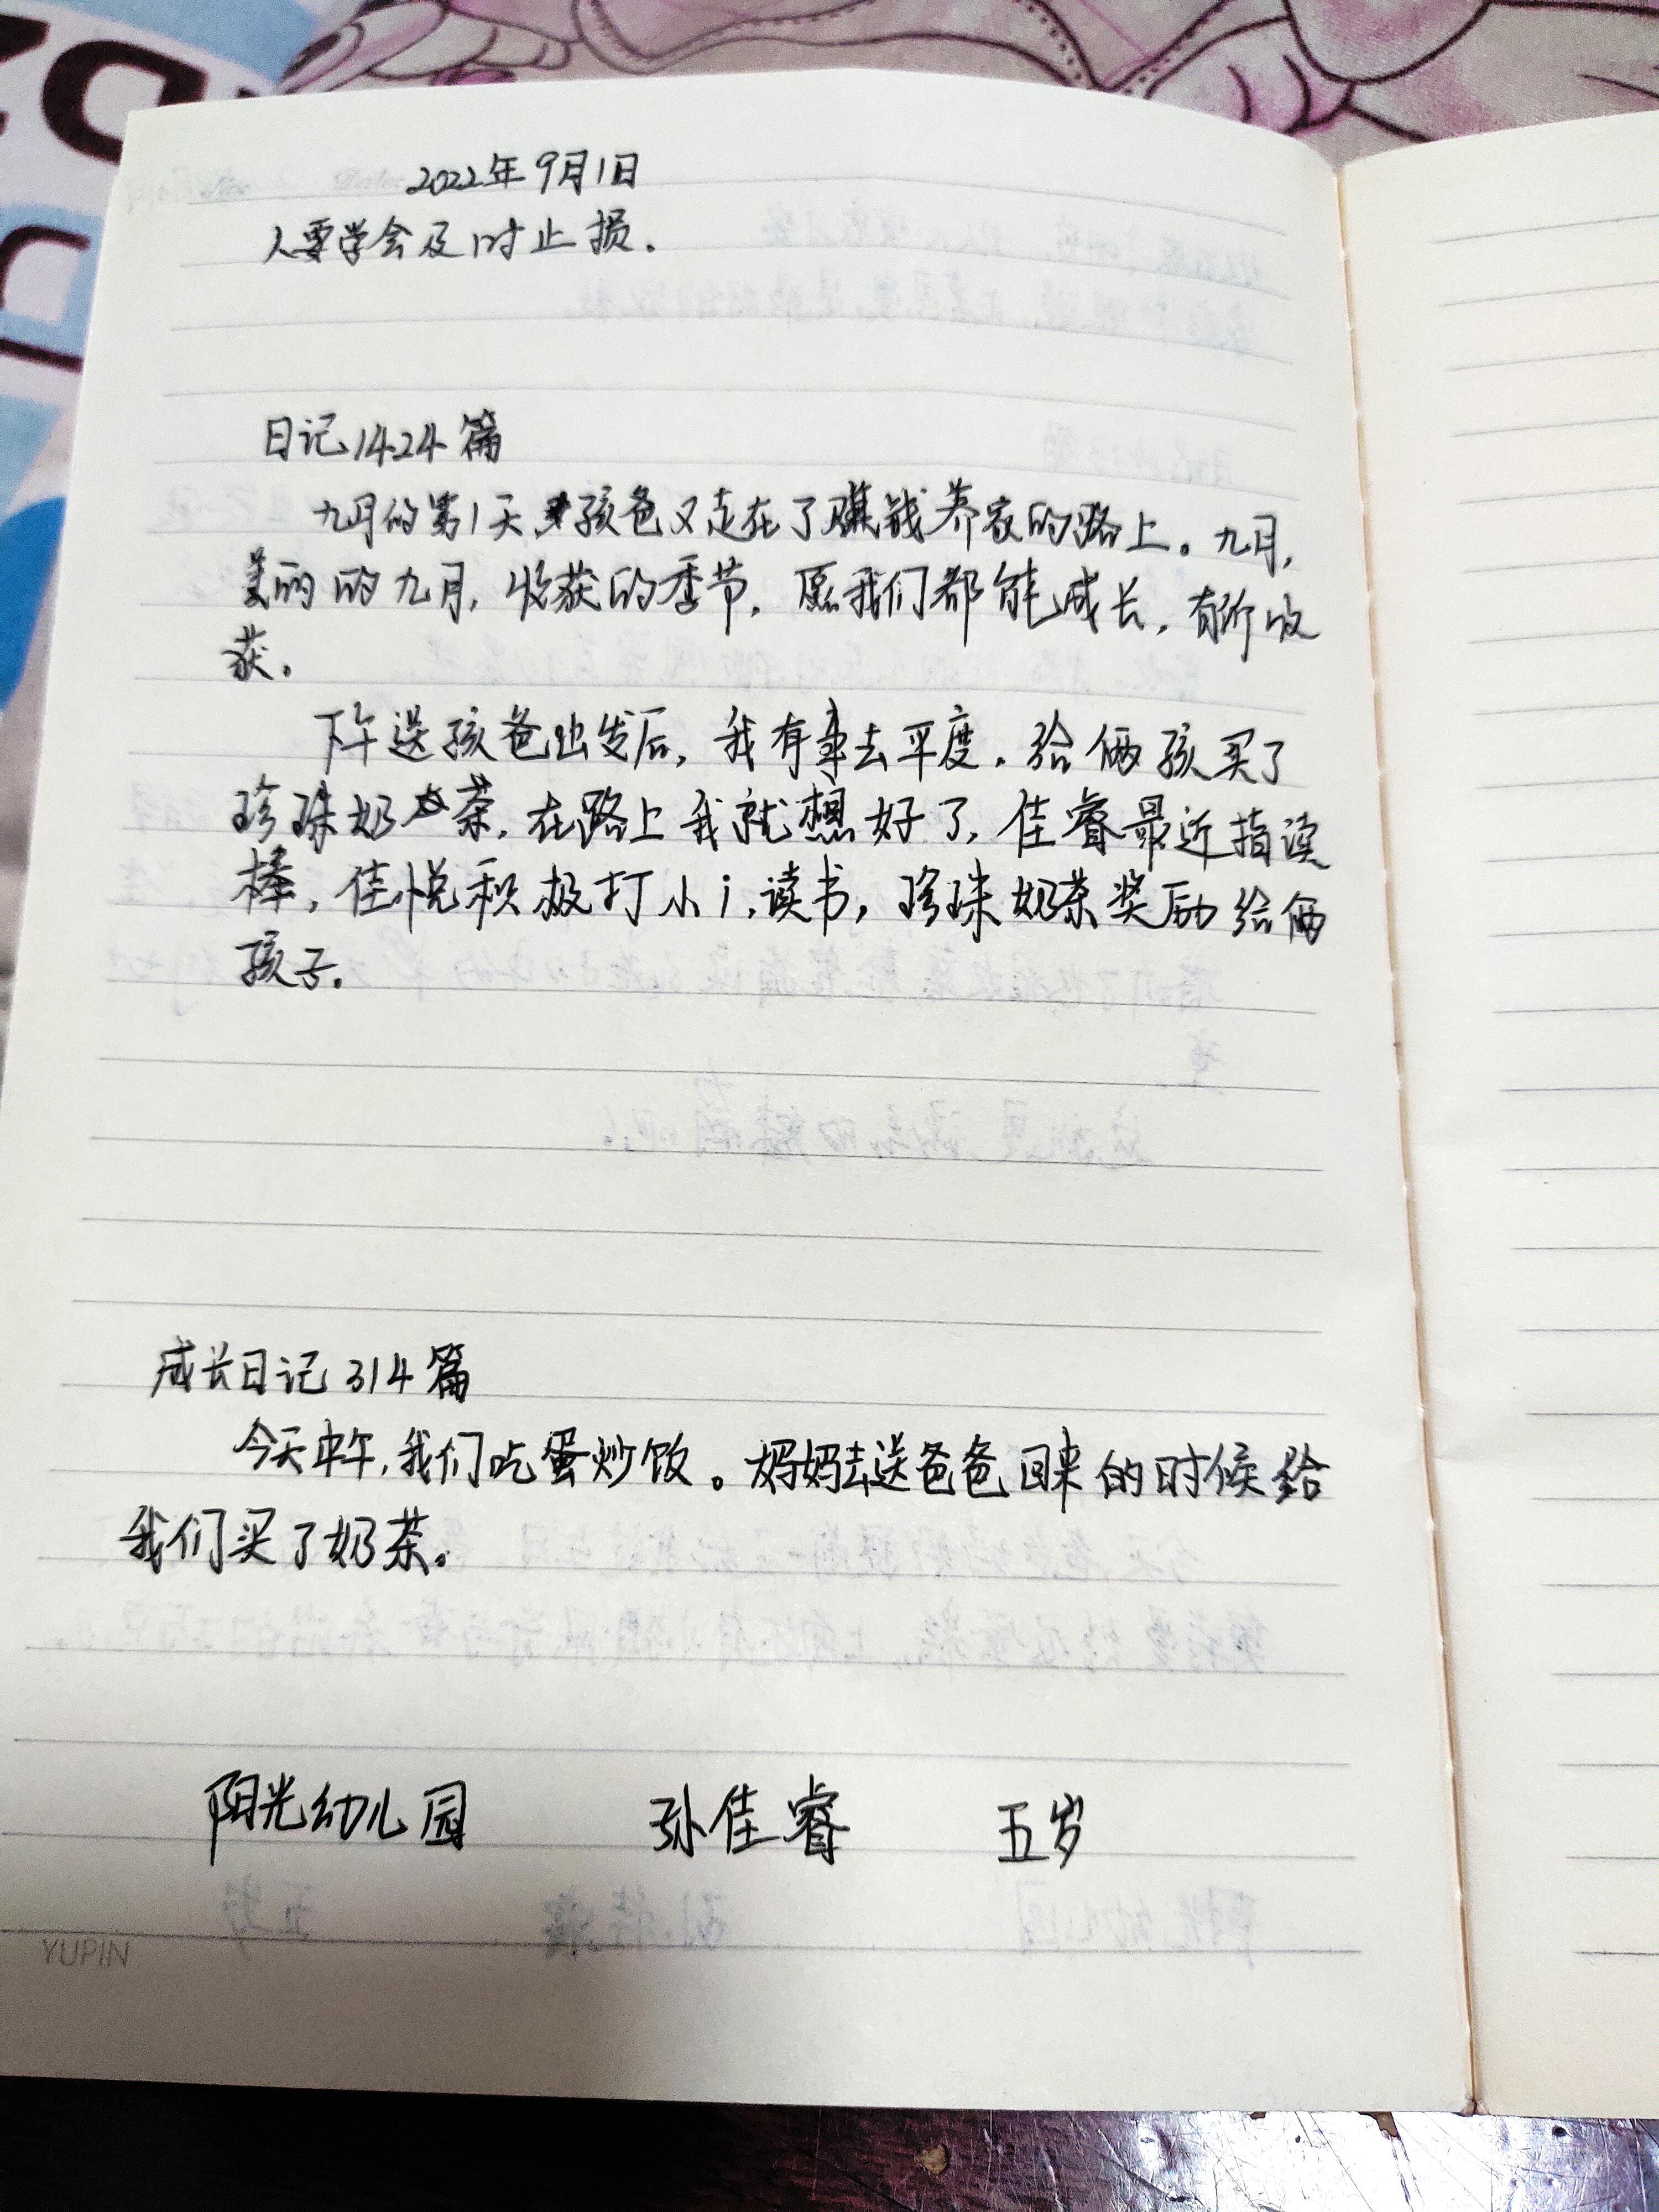 2022年9月1日
人要学会及时止损.
日记1424篇
九月的第1天孩爸又走在了赚钱养家的路上。九月,
美丽的九月,收获的季节,愿我们都能成长,有所收
获。
下午送孩爸出发后,我有事去平度.给俩孩买了
珍珠奶茶,在路上我就想好了,佳睿最近指读
棒,佳悦积极打小i,读书,珍珠奶茶奖励给俩
孩子.
成长日记314篇
今天中午,我们吃蛋炒饭。妈妈去送爸爸回来的时候给
我们买了奶茶。
阳光幼儿园 孙佳睿 五岁
YUPIN